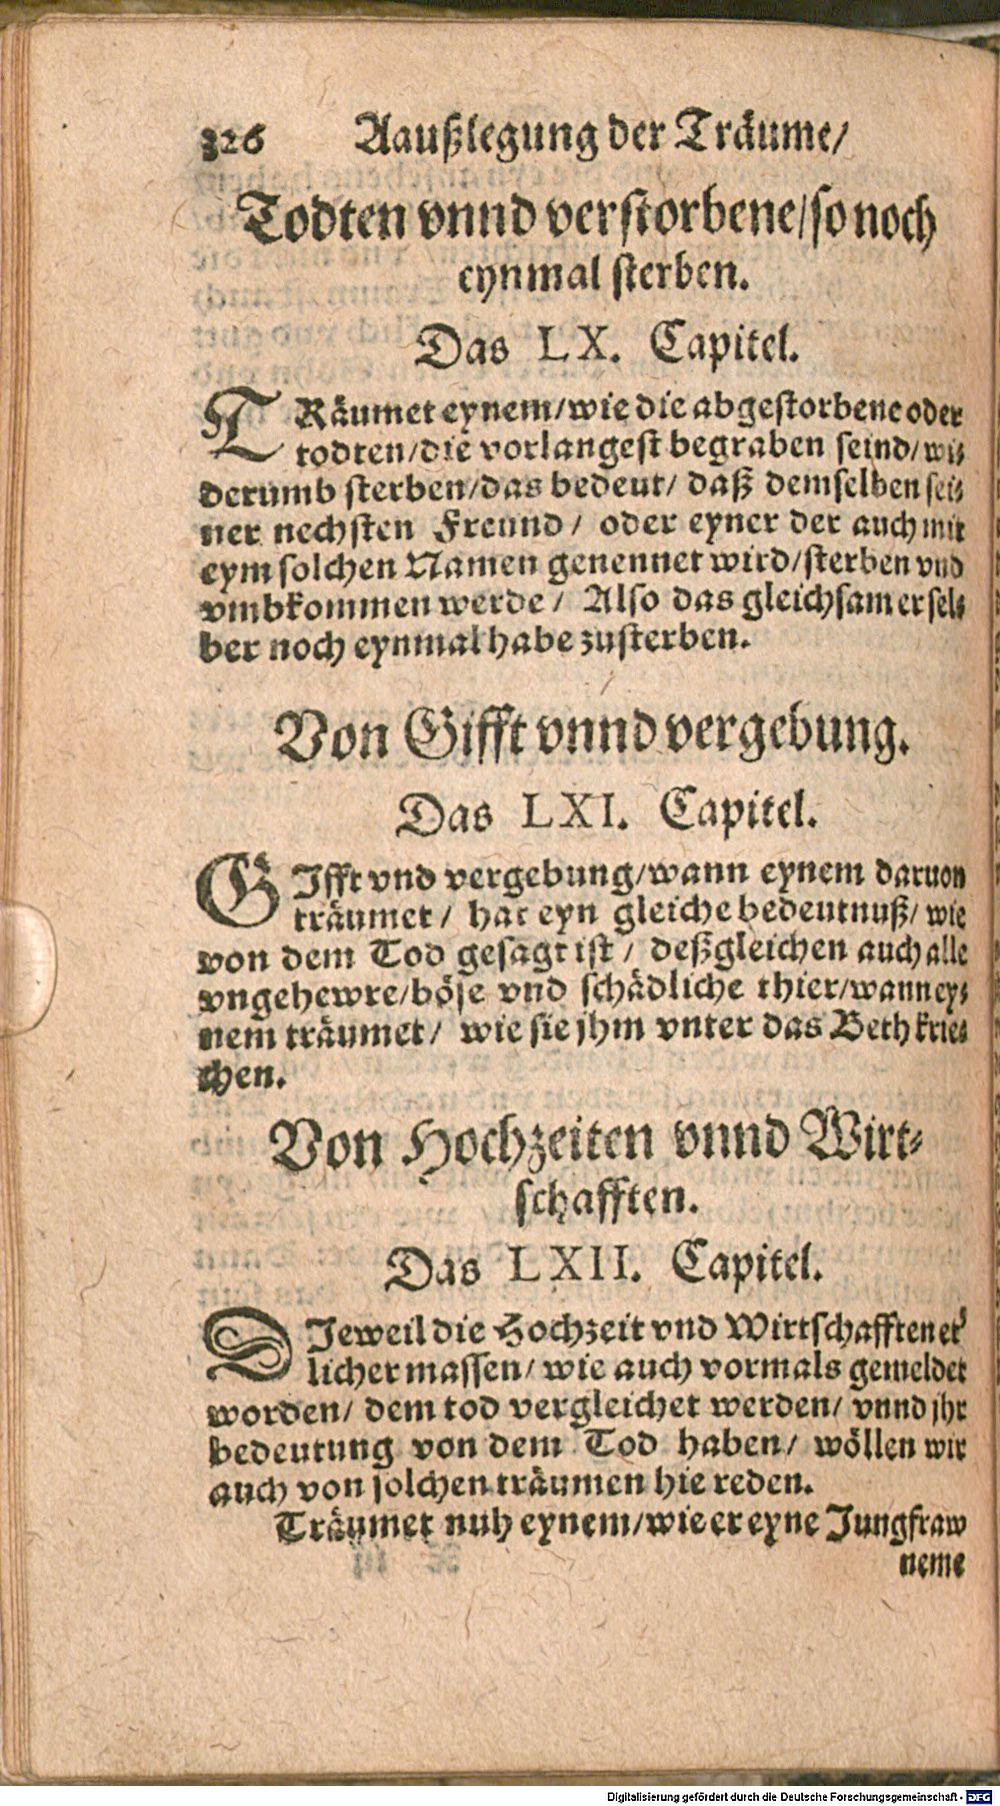 326 Aaußlegung der Träume/
Todten vnnd verstorbene/so noch
eynmal sterben.
Das LX. Capitel.
TRäumet eynem/wie die abgestorbene oder
todten/die vorlangest begraben seind/wi⸗
derumb sterben/das bedeut/ daß demselben sei⸗
ner nechsten Freund/ oder eyner der auch mit
eym solchen Namen genennet wird/sterben vnd
vmbkommen werde/ Also das gleichsam er sel⸗
ber noch eynmal habe zusterben.
Von Gifft vnnd vergebung.
Das LXI. Capitel.
GIfft vnd vergebung/wann eynem daruon
träumet/ hat eyn gleiche bedeutnuß/ wie
von dem Tod gesagt ist/ deßgleichen auch alle
vngehewre/böse vnd schädliche thier/wann ey⸗
nem träumet/ wie sie jhm vnter das Beth krie⸗
chen.
Von Hochzeiten vnnd Wirt⸗
schafften.
Das LXII. Capitel.
DJeweil die Hochzeit vnd Wirtschafften et⸗
licher massen/ wie auch vormals gemeldet
worden/ dem tod vergleichet werden/ vnnd jhr
bedeutung von dem Tod haben/ wöllen wir
auch von solchen träumen hie reden.
Träumet nuh eynem/wie er eyne Jungfraw
neme
Digitalisierung gefördert durch die Deutsche Forschungsgemeinschaft - DFG